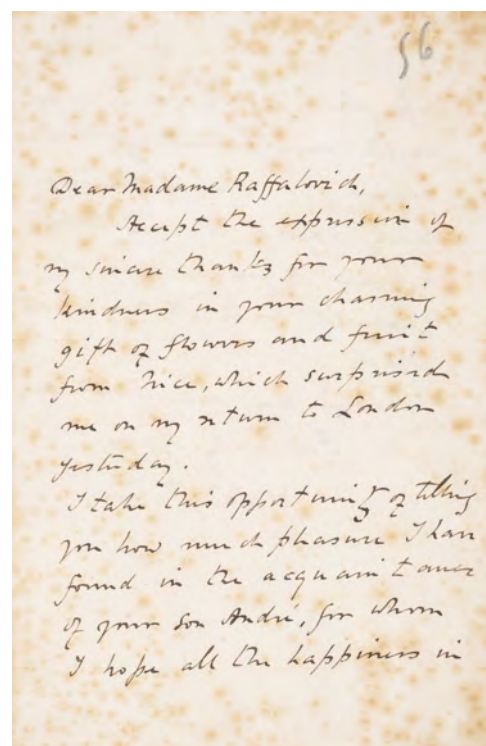 56
Dear Madame Raffalovich,
Accept the expression of
my sincere thanks for your
kindness in your charming
gift of flowers and fruit
from Nice, which surprised
me on my return to London
yesterday.
I take this opportunity of telling
you how much pleasure I have
found in the acquaintance
of your son André, for whom
I hope all the happiness in